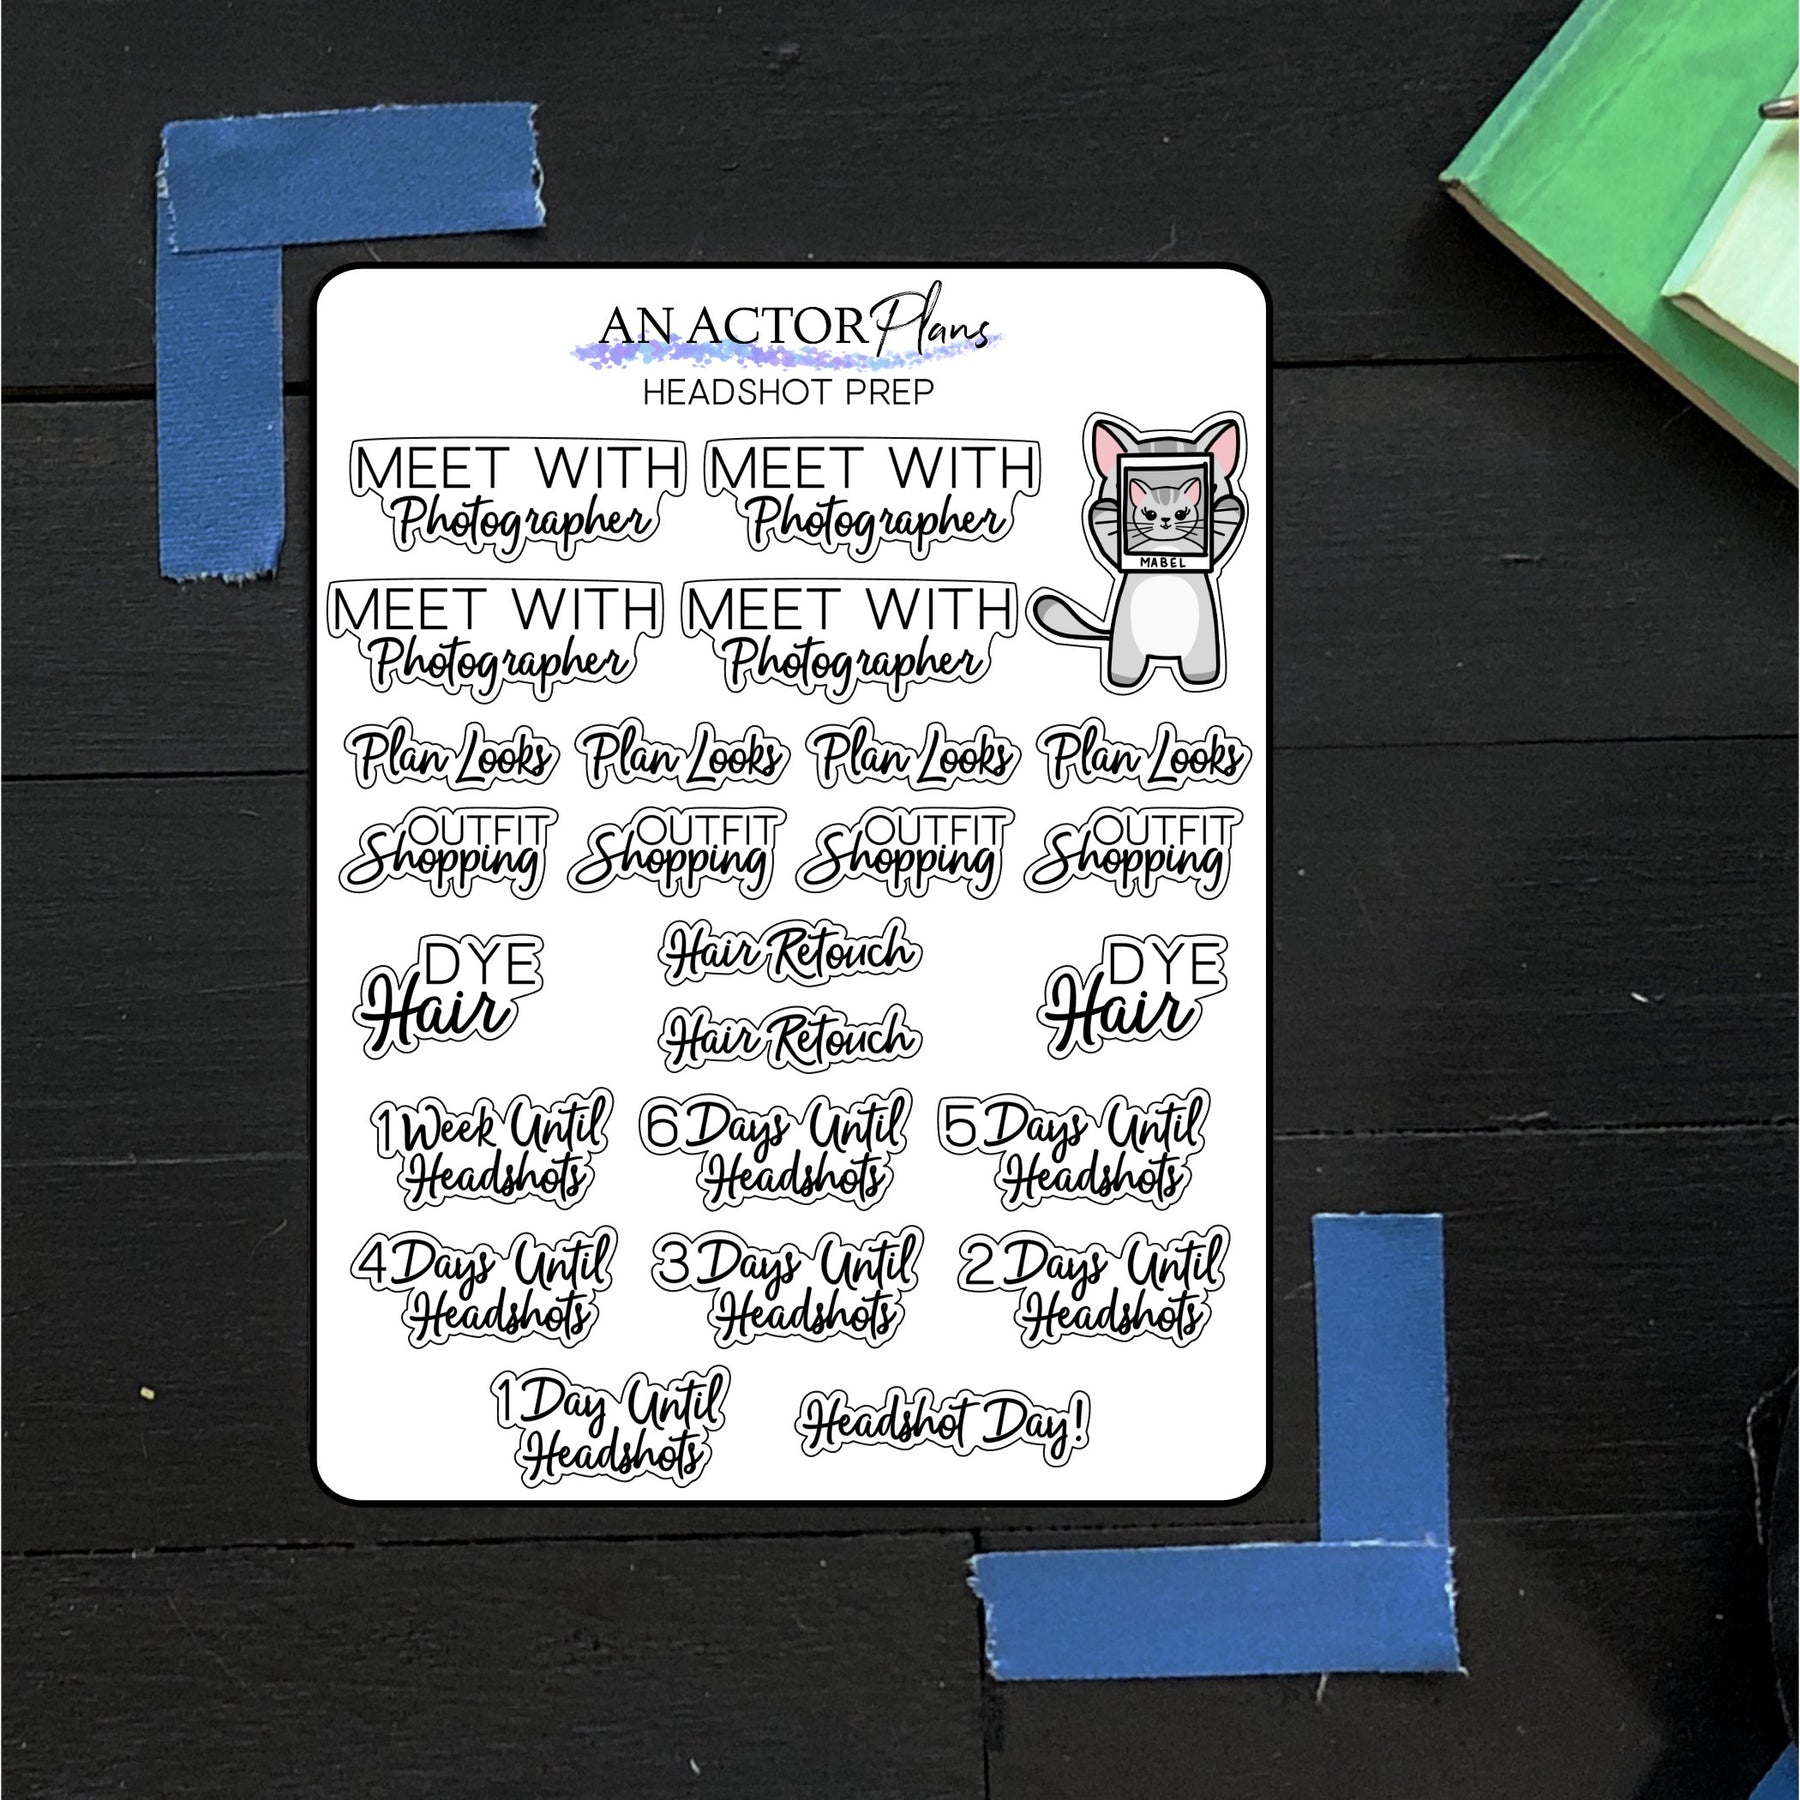 AN ACTOR Plans
HEADSHOT PREP
MEET WITH
Photographer
MEET WITH
Photographer
MABEL
MEET WITH
Photographer
MEET WITH
Photographer
Plan Looks
Plan Looks
Plan Looks
Plan Looks
OUTFIT
Shopping
OUTFIT
Shopping
OUTFIT
Shopping
OUTFIT
Shopping
DYE
Hair
Hair Retouch
Hair Retouch
DYE
Hair
1 Week Until
Headshots
6 Days Until
Headshots
5 Days Until
Headshots
4 Days Until
Headshots
3 Days Until
Headshots
2 Days Until
Headshots
1 Day Until
Headshots
Headshot Day!